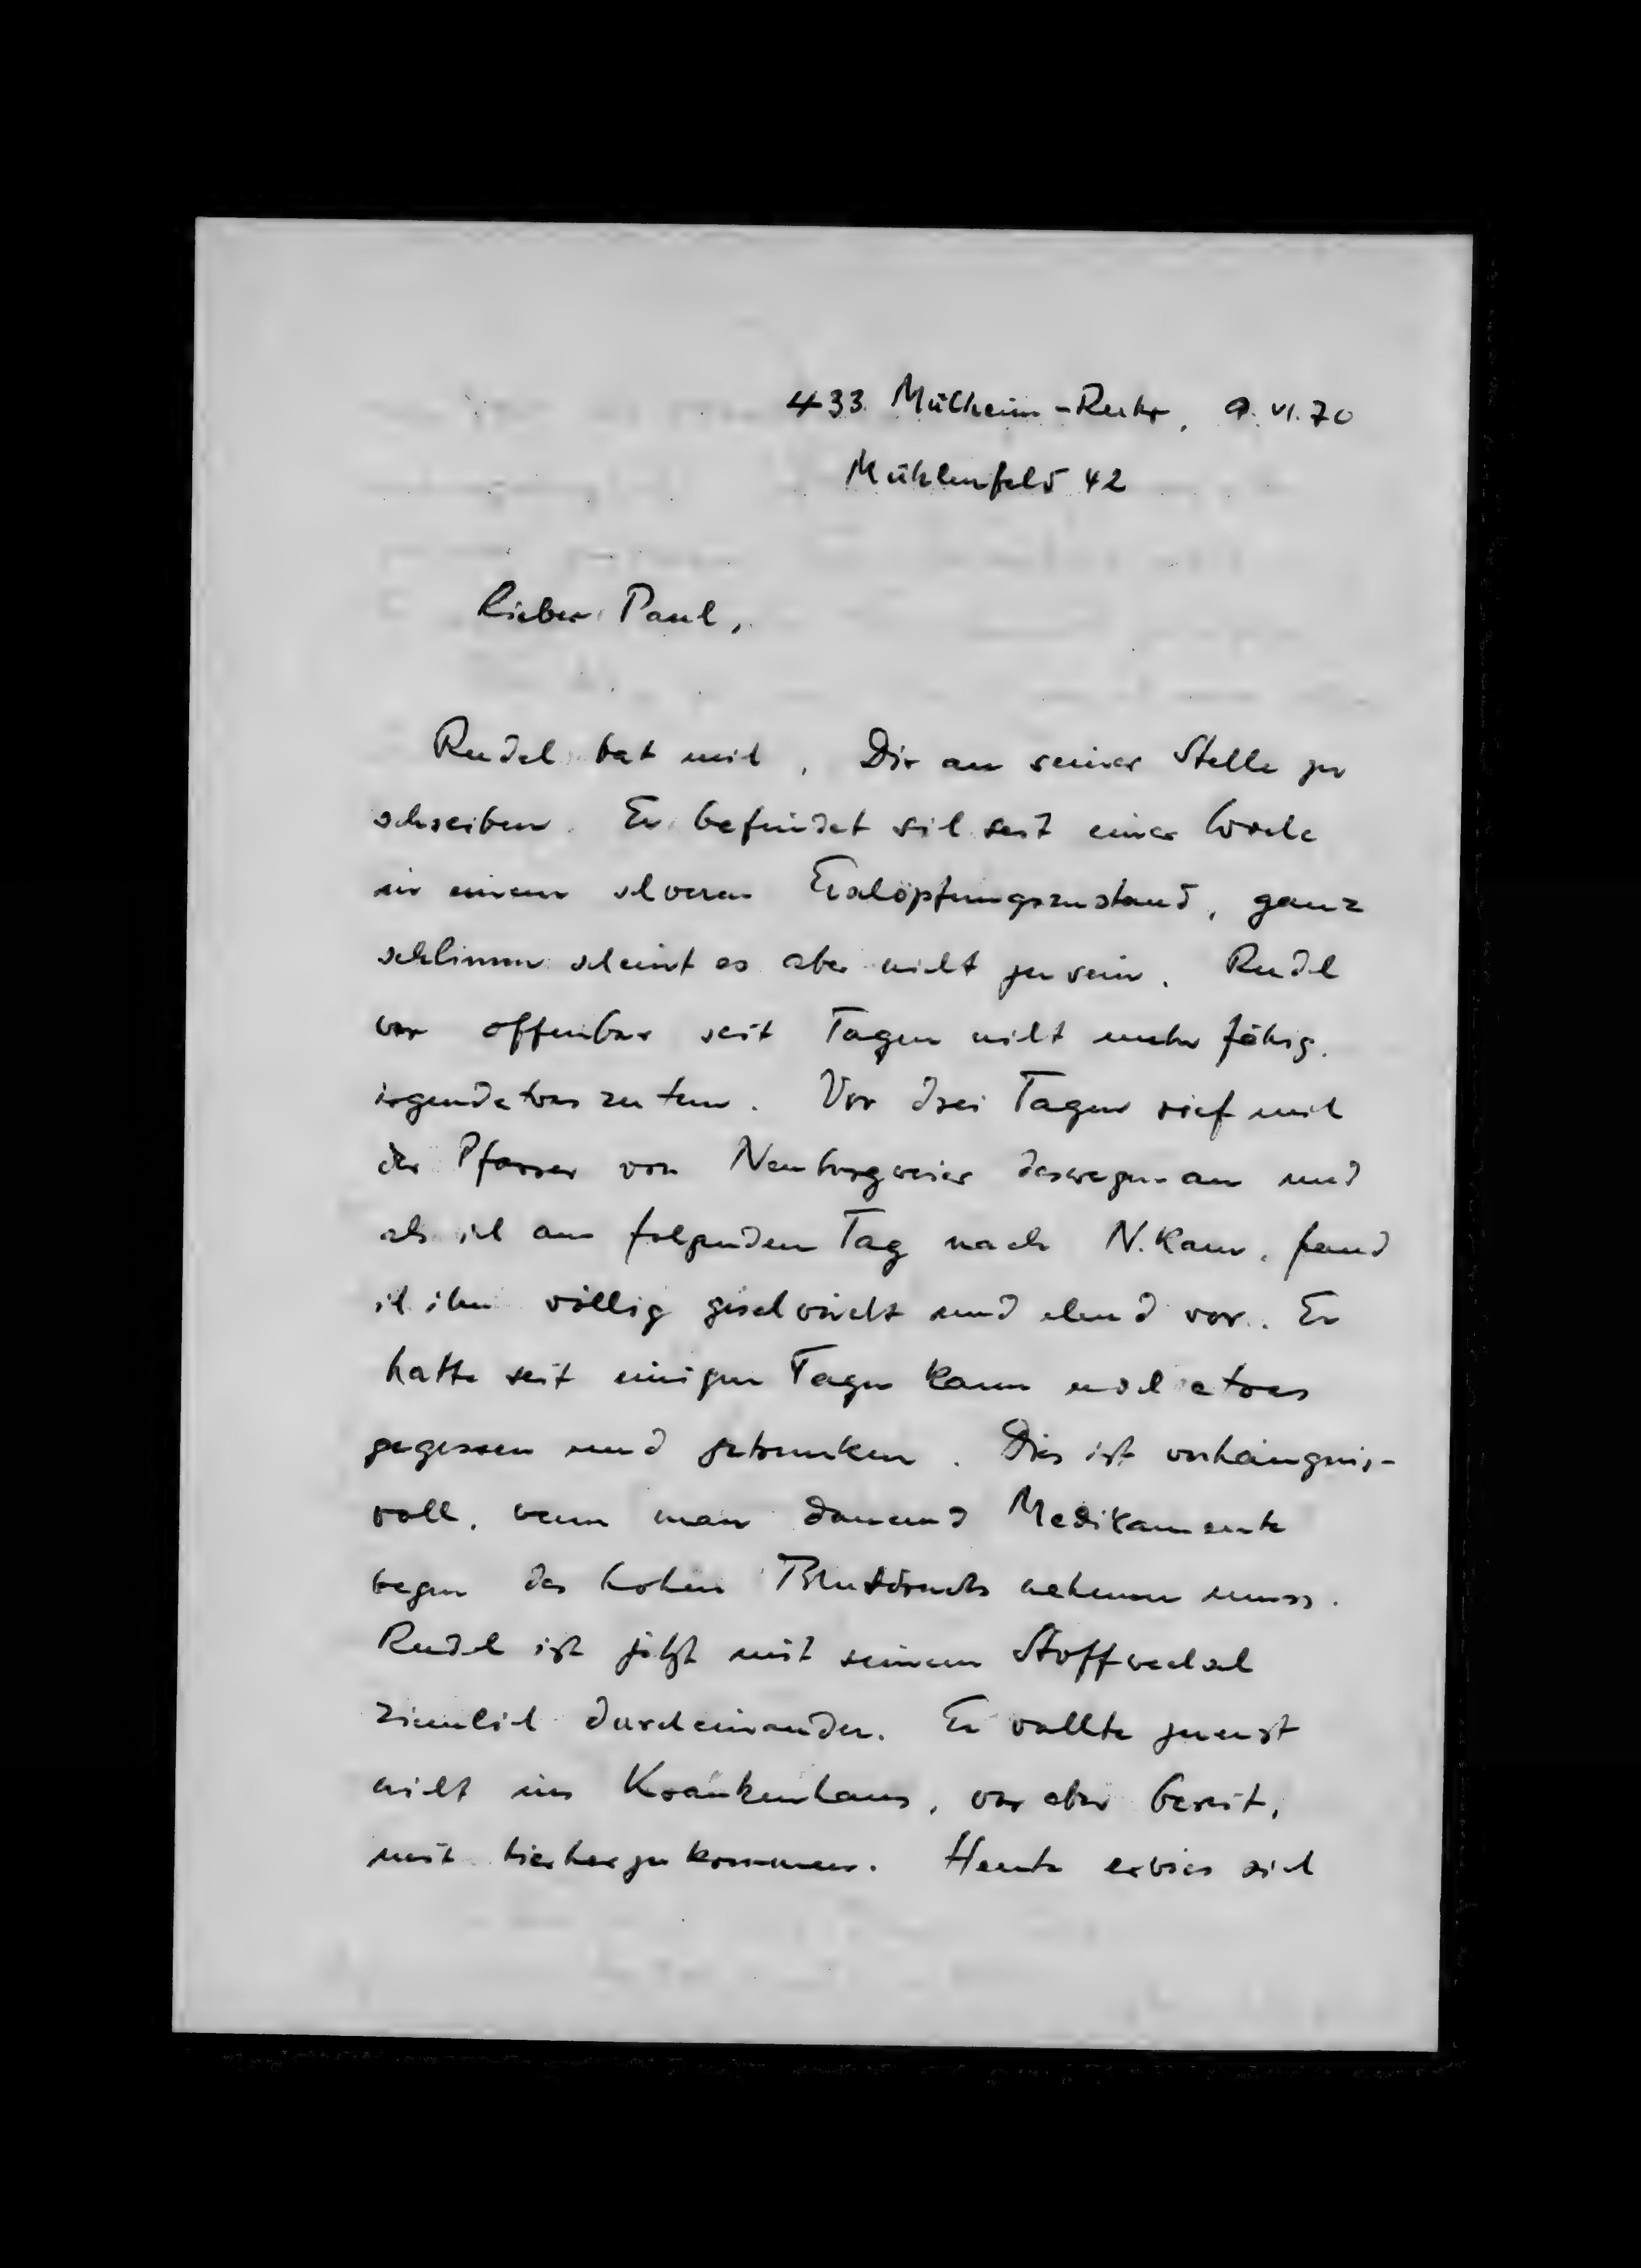 433 Mülheim-Ruhr, 9.VI.70
Mühlenfeld 42
Lieber Paul,
Rudel bat mich, Dir an seiner Stelle zu
schreiben. Er befindet sich seit einer Woche
in einem schweren Erschöpfungszustand, ganz
schlimm scheint es aber nicht zu sein. Rudel
war offenbar seit Tagen nicht mehr fähig,
irgendetwas zu tun. Vor drei Tagen rief mich
der Pfarrer von Neuburgweier deswegen an und
als ich am folgenden Tag nach N. kam, fand
ich ihn völlig geschwächt und elend vor. Er
hatte seit einigen Tagen kaum noch etwas
gegessen und getrunken. Dies ist verhängnis-
voll, wenn man dauernd Medikamente
wegen des hohen Blutdrucks nehmen muss.
Rudel ist jetzt mit seinem Stoffwechsel
ziemlich durcheinander. Er wollte zuerst
nicht ins Krankenhaus, war aber bereit,
mit hierherzukommen. Heute erwies sich